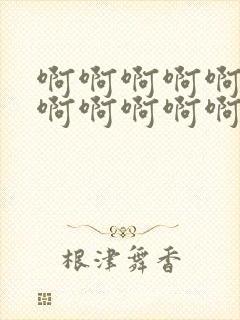 啊啊啊啊啊
啊啊啊啊啊
根津舞香